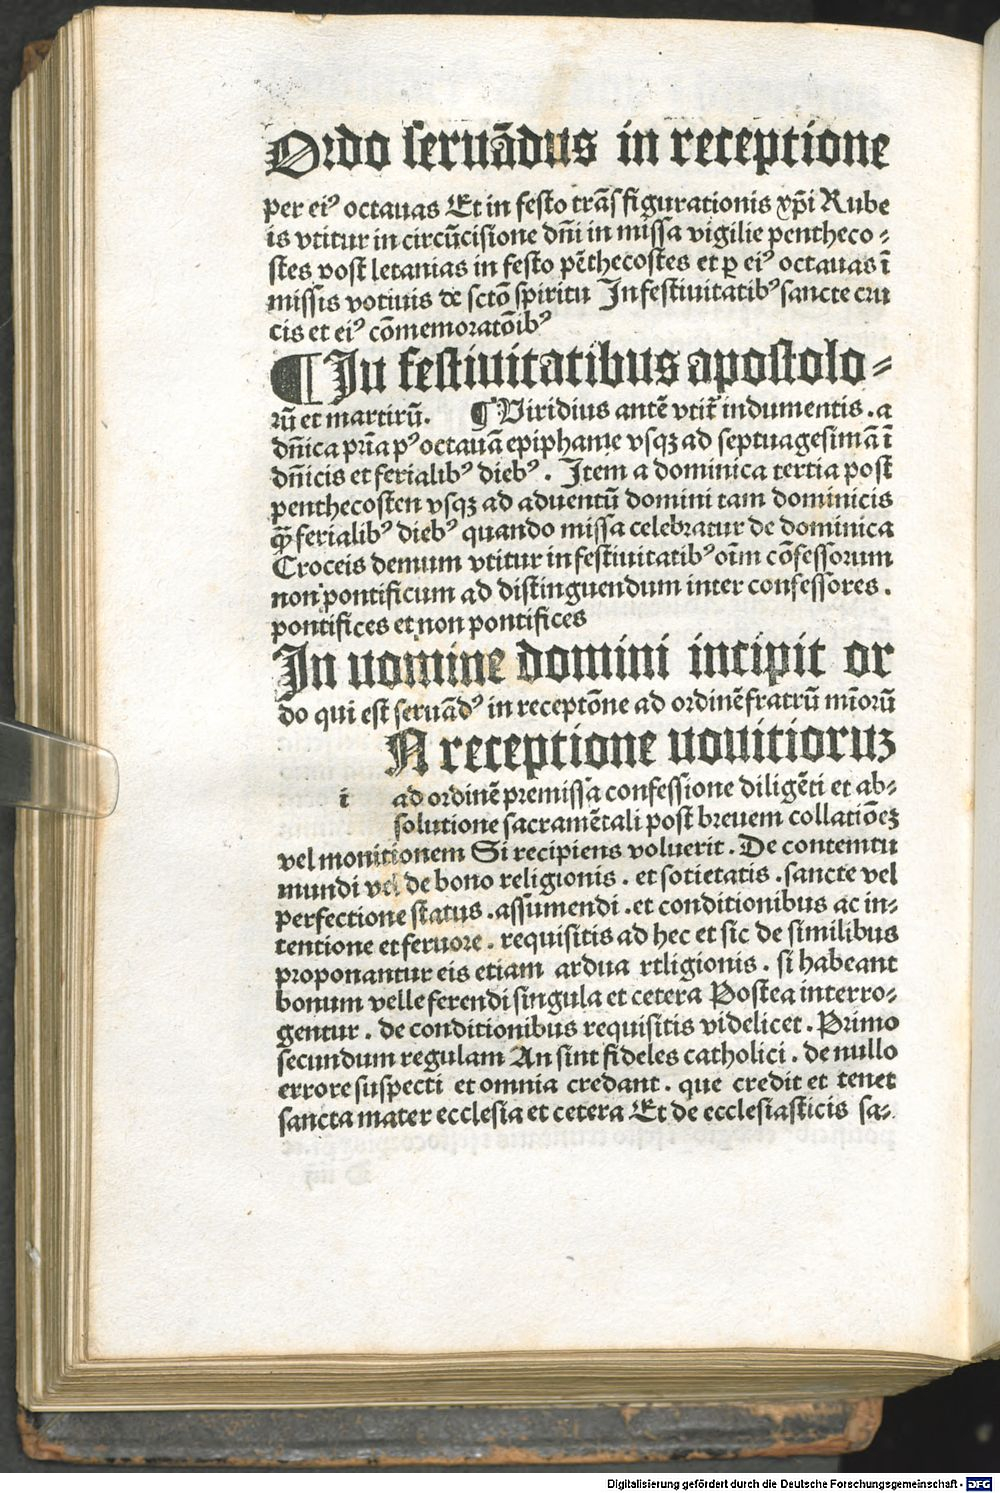 Ordo seruādus in receptione
per ei⁹ octauas Et in festo trāsfigurationis xp̄i Rube
is vtitur in circūcisione dn̄i in missa vigilie pentheco⸗
stes post letanias in festo pēthecostes et ꝑ ei⁹ octauas ī
missis votiuis de sctō spiritu In festiuitatib⁹ sancte cru
cis et ei⁹ cōmemoratōib⁹
¶ In festiuitatibus apostolo⸗
rū et martirū. ¶ Viridius antē vtit̄ indumentis . a
dn̄ica prīa p⁹ octauā epiphanie vsqꝫ ad septuagesimā ī
dn̄icis et ferialib⁹ dieb⁹ . Item a dominica tertia post
penthecosten vsqꝫ ad aduentū domini tam dominicis
ꝙ̄ ferialib⁹ dieb⁹ quando missa celebratur de dominica
Croceis demum vtitur in festiuitatib⁹ oīm cōfessorum
non pontificum ad distinguendum inter confessores .
pontifices et non pontifices
In nomine domini incipit or
do qui est seruād⁹ in receptōne ad ordinē fratrū mīorū
N receptione nouitioruꝫ
i ad ordinē premissa confessione diligēti et ab⸗
solutione sacramētali post breuem collatiōeꝫ
vel monitionem Si recipiens voluerit . De contemtu
mundi vel de bono religionis . et sotietatis . sancte vel
perfectione status . assumendi . et conditionibus ac in⸗
tentione et feruore . requisitis ad hec et sic de similibus
proponantur eis etiam ardua rtligionis . si habeant
bonum velle ferendi singula et cetera Postea interro⸗
gentur . de conditionibus requisitis videlicet . Primo
secundum regulam An sint fideles catholici . de nullo
errore suspecti et omnia credant . que credit et tenet
sancta mater ecclesia et cetera Et de ecclesiasticis sa⸗
Digitalisierung gefördert durch die Deutsche Forschungsgemeinschaft - DFG